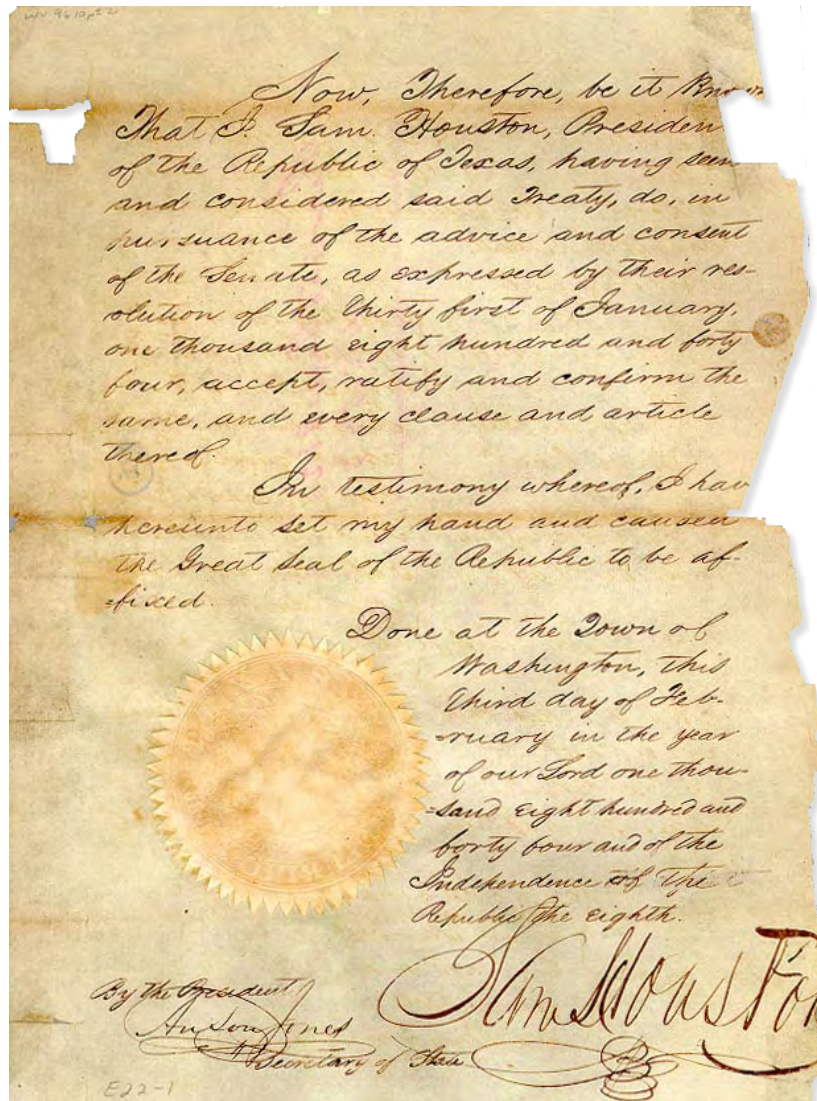 Now, Therefore, be it Known
That I, Sam Houston, Presiden
of the Republic of Texas, having seen
and considered said Treaty, do, in
pursuance of the advice and consent
of the Senate, as expressed by their res-
olution of the thirty first of January,
one thousand eight hundred and forty
four, accept, ratify and confirm the
same, and every clause and article
thereof.
In testimony whereof, I hav
hereunto set my hand and caused
the Great Seal of the Republic to be af-
=fixed.
Done at the Town of
Washington, this
third day of Feb-
=ruary in the year
of our Lord one thou-
=sand eight hundred and
forty four and of the
Independence of the
Republic the eighth.
Sam Houston
By the President
Anson Jones
Secretary of State
E22-1